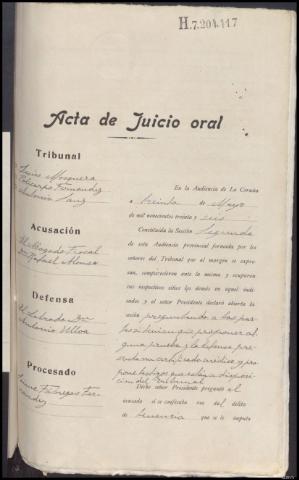 H.7.204.117
Acta de Juicio oral
Tribunal
Luis Mosquera
Policarpo Fernandez
Antonio Sanz
Acusación
El Abogado Fiscal
Don Rafael Alonso
Defensa
El Letrado Don
Antonio Ulloa
Procesado
Jaime Fabregas Fer
nandez
En la Audiencia de La Coruña
a treinta de Mayo
de mil novecientos treinta y seis
Constituida la Sección Segunda
de esta Audiencia provincial formada por los
señores del Tribunal que al margen se expre-
san, comparecieron ante la misma y ocuparon
sus respectivos sitios los donde en aquel indi-
cados y el señor Presidente declaró abierta la
sesión preguntando a las par
tes si tienen que proponer al
guna prueba y la defensa pre
senta un certificado médico y pro
pone testigos que están a disposi
ción del Tribunal
Dicho señor Presidente preguntó al
acusado si se confesaba reo del delito
de tenencia que se le imputa